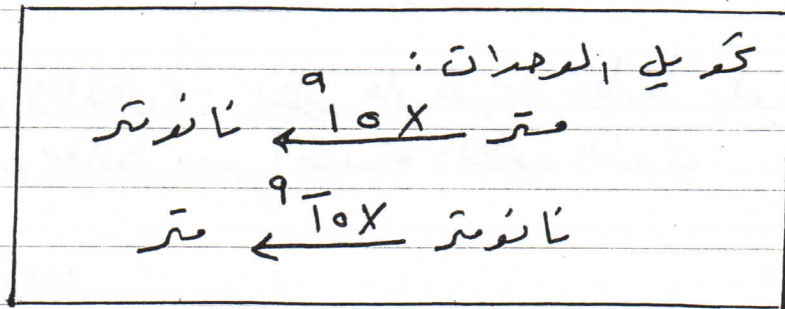 تحويل الوحدات :
متر ×10⁹ ← نانومتر
نانومتر ×10⁻⁹ ← متر